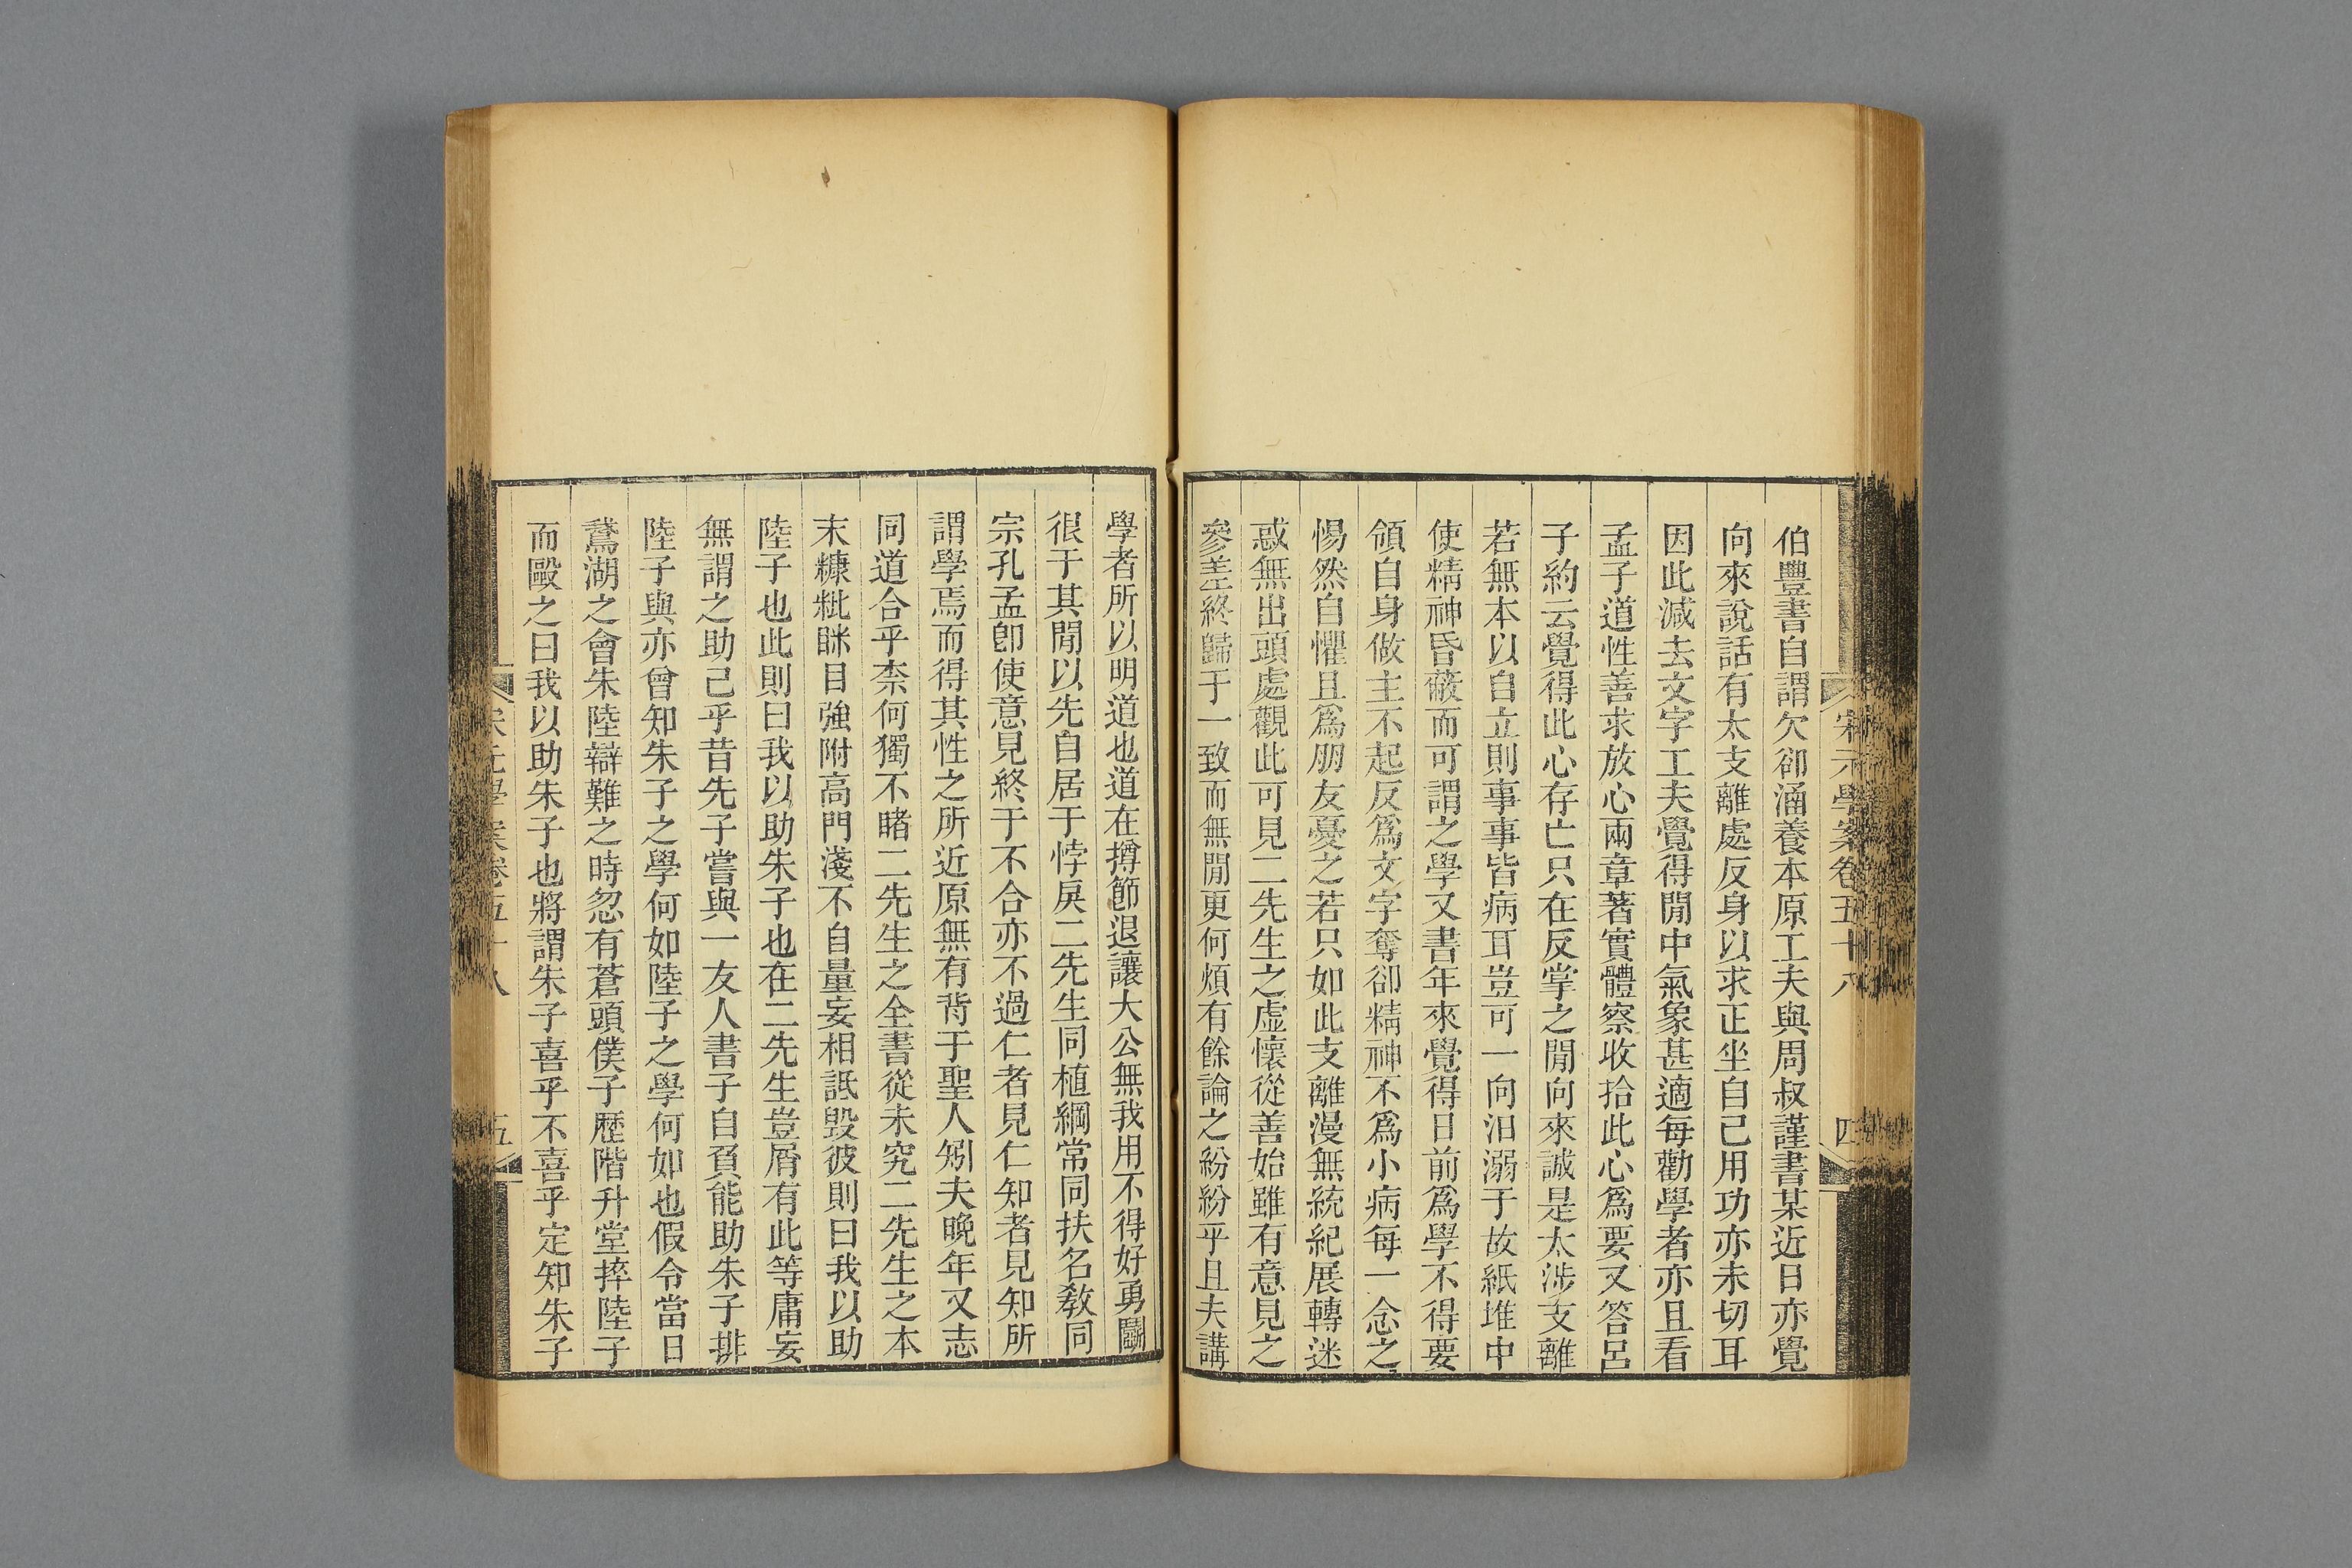 伯豐書自謂欠卻涵養本原工夫與周叔謹書某近日亦覺
向來說話有太支離處反身以求正坐自己用功亦未切耳
因此減去文字工夫覺得閒中氣象甚適每勸學者亦且看
孟子道性善求放心兩章著實體察收拾此心爲要又答呂
子約云覺得此心存亡只在反掌之閒向來誠是太涉支離
若無本以自立則事事皆病耳豈可一向汨溺于故紙堆中
使精神昏蔽而可謂之學又書年來覺得日前爲學不得要
領自身做主不起反爲文字奪卻精神不爲小病每一念之
惕然自懼且爲朋友憂之若只如此支離漫無統紀展轉迷
惑無出頭處觀此可見二先生之虛懷從善始雖有意見之
參差終歸于一致而無閒更何煩有餘論之紛紛乎且夫講
宋元學案卷五十八
四
學者所以明道也道在撙節退讓大公無我用不得好勇鬭
很于其閒以先自居于悖戾二先生同植綱常同扶名敎同
宗孔孟卽使意見終于不合亦不過仁者見仁知者見知所
謂學焉而得其性之所近原無有背于聖人矧夫晚年又志
同道合乎柰何獨不睹二先生之全書從未究二先生之本
末糠粃眯目強附高門淺不自量妄相詆毀彼則曰我以助
陸子也此則曰我以助朱子也在二先生豈屑有此等庸妄
無謂之助己乎昔先子嘗與一友人書子自負能助朱子排
陸子與亦曾知朱子之學何如陸子之學何如也假令當日
鵞湖之會朱陸辯難之時忽有蒼頭僕子歷階升堂捽陸子
而毆之曰我以助朱子也將謂朱子喜乎不喜乎定知朱子
宋元學案卷五十八
五